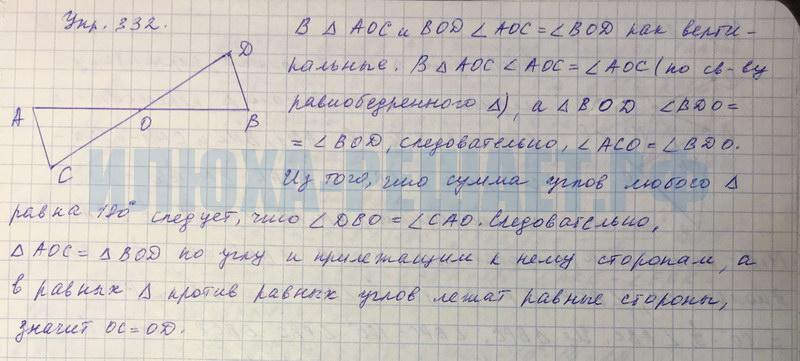 Упр. 332.
В △ AOC и BOD ∠AOC = ∠BOD как верти-
кальные. В △ AOC ∠AOC = ∠AOC (по св-ву
равнобедренного △), а △ BOD ∠BDO =
= ∠BOD, следовательно, ∠ACO = ∠BDO.
Из того, что сумма углов любого △
равна 180° следует, что ∠DBO = ∠CAO. Следовательно,
△ AOC = △ BOD по углу и прилежащим к нему сторонам, а
в равных △ против равных углов лежат равные стороны,
значит OC = OD.
D
A
O
B
C
ИЛЮХА-РЕШАЕТ.РФ